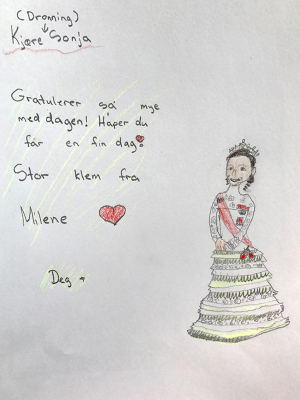 (Dronning)
Kjære Sonja
Gratulerer så mye
med dagen! Håper du
får en fin dag!
Stor klem fra
Milene
Deg